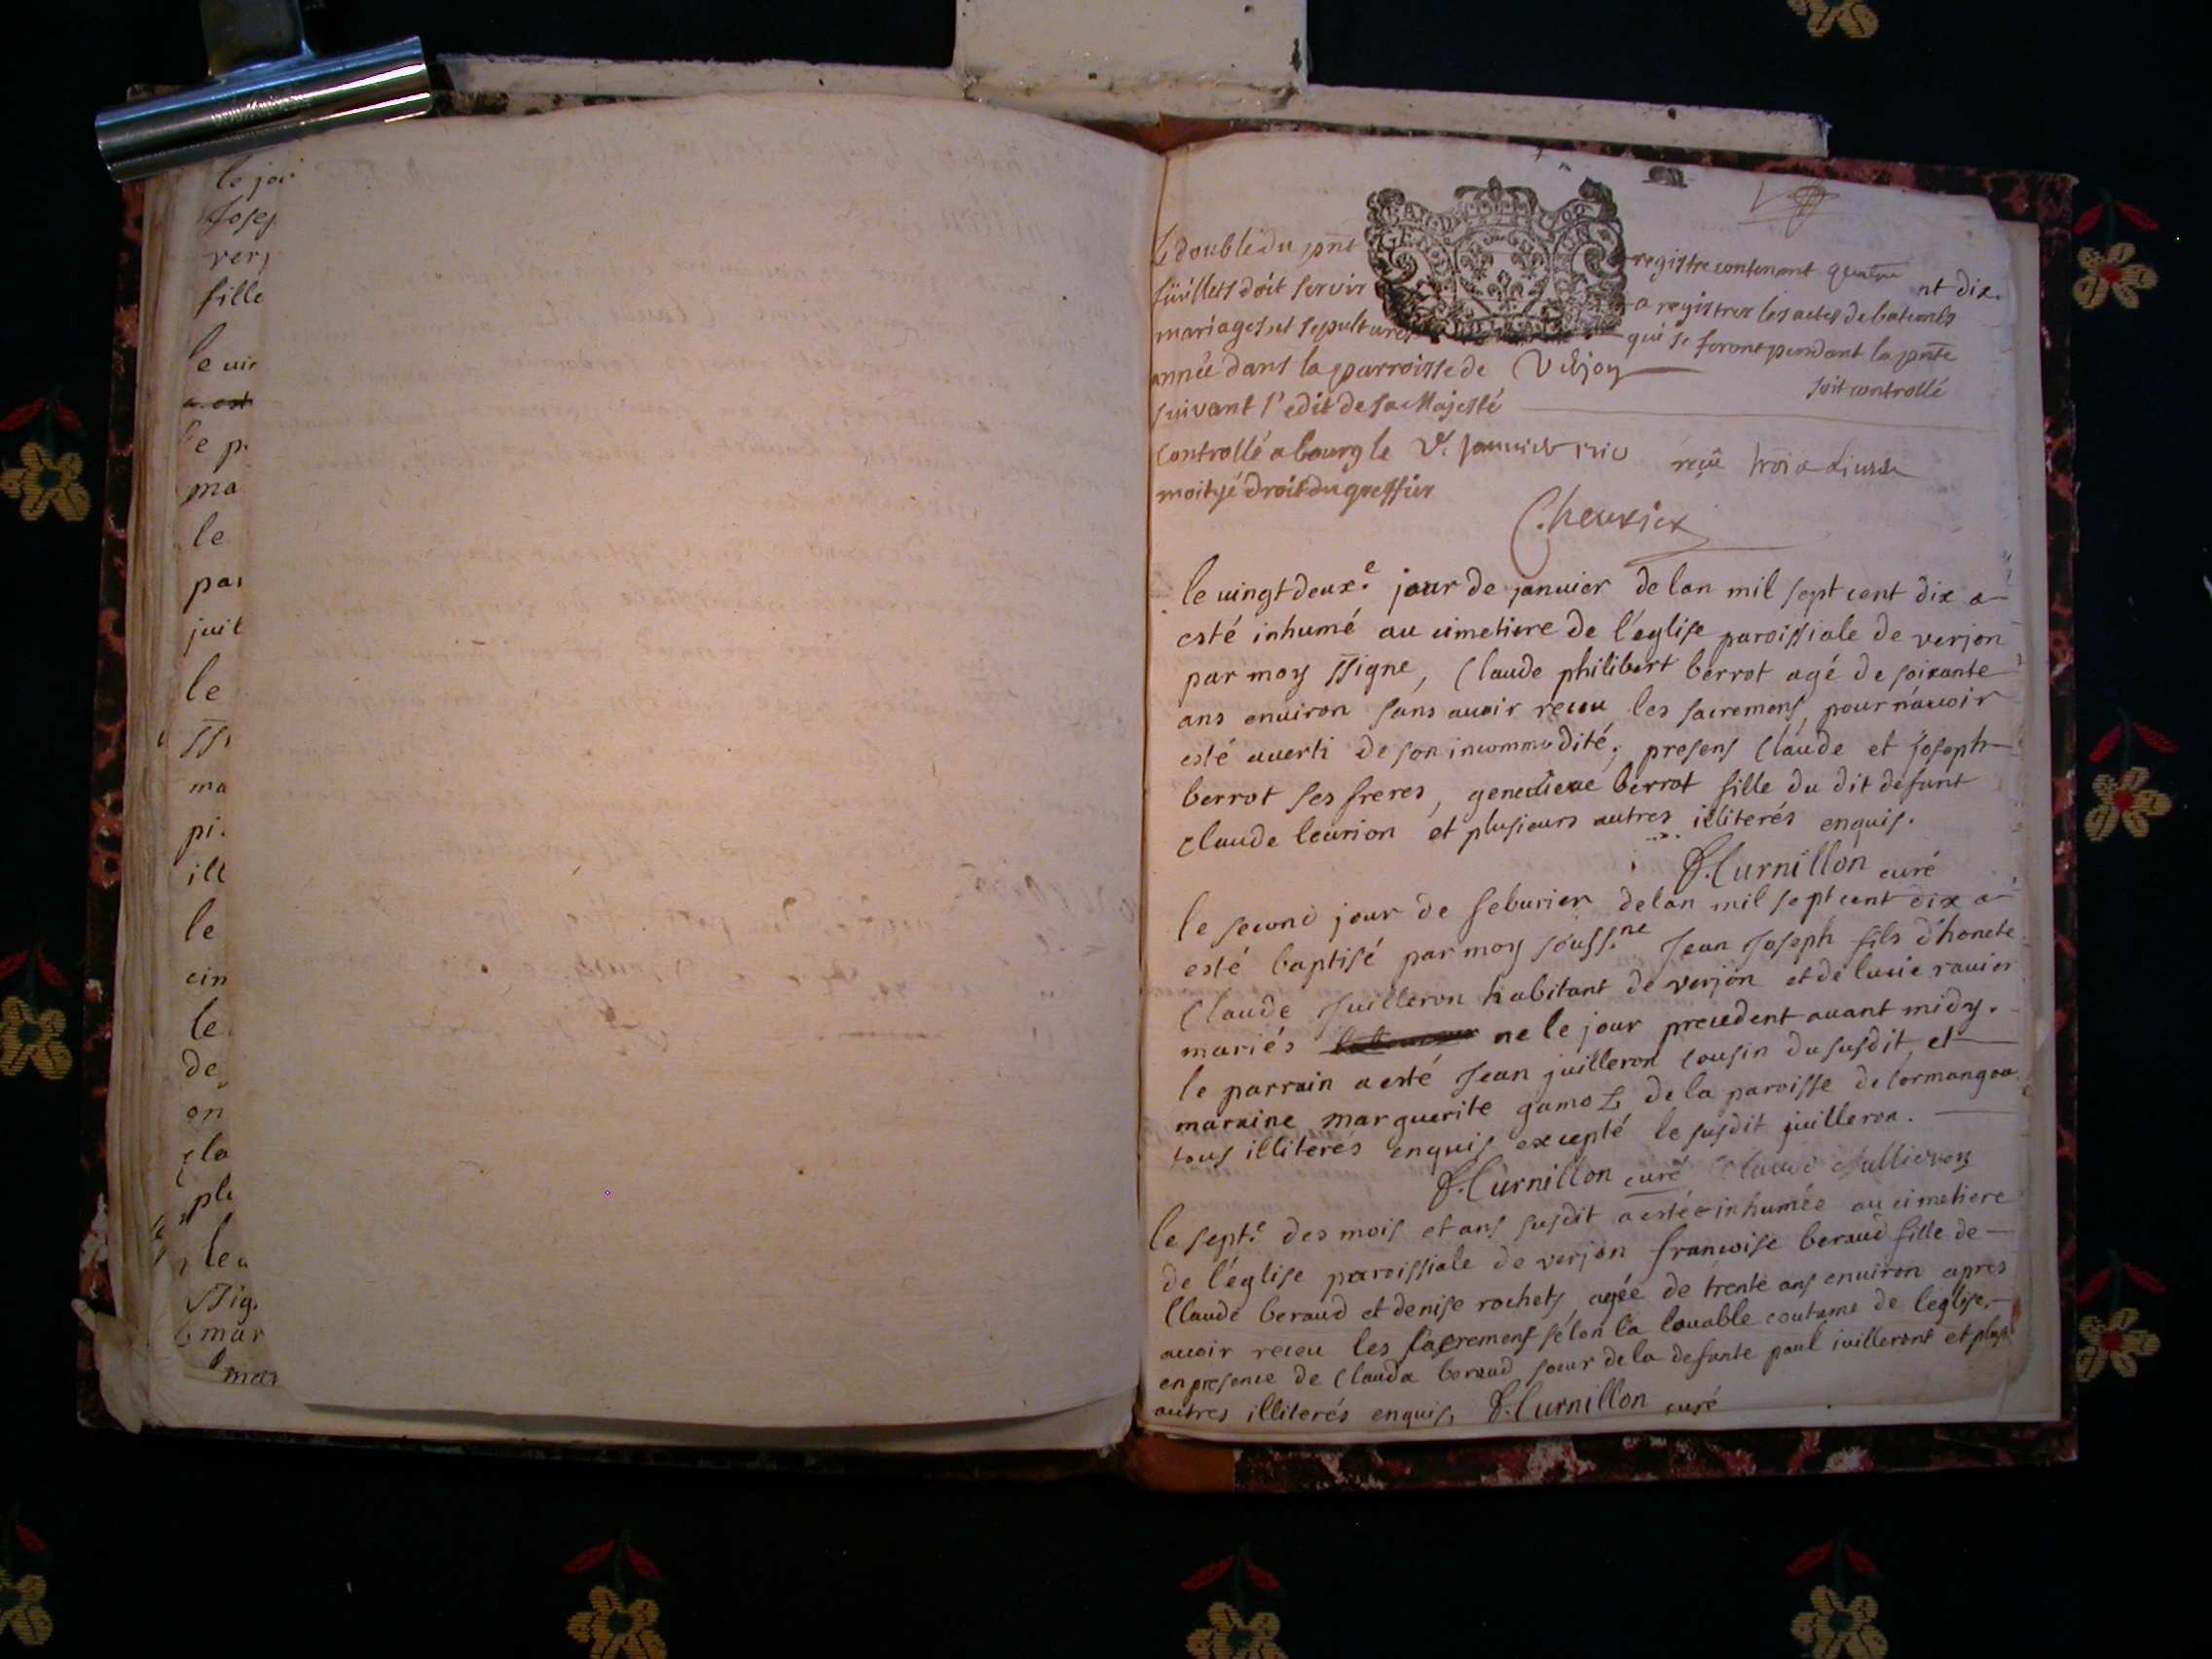 le jou
Josep
verj
fille
le vin
a est
le p
ma
le
par
juil
le
ma
pi
ill
le
cim
le
de
on
cla
plu
le
mar
mar
Le double du pnt registre contenant quatre
füillets doit servir a registrer les actes de batemes
mariages et sepultures qui se feront pendant la pnte
année dans la parroisse de Veljon
suivant l'edit de sa Majesté soit controllé
Controllé a bourg le janvier reçû trois livres
moityé droit du greffier
Cheurier
le vingt deux.e jour de janvier de lan mil sept cent dix a
esté inhumé au cimetiere de l'eglise paroissiale de verjon
par moy ssigne, Claude philibert berrot agé de soixante
ans environ sans avoir receu les sacremens, pour n'avoir
esté averti de son incommodité; presens Claude et Joseph
berrot ses freres, genevieve berrot fille du dit defunt
claude leurion et plusieurs autres illiterés enquis.
Curnillon curé
le second jour de feburier de lan mil sept cent dix a
esté baptisé par moy souss.ne Jean Joseph fils d'honete
Claude Juilleron habitant de verjon et de lucie ravier
mariés ne le jour precedent avant midy.
le parrain a esté Jean juilleron cousin du susdit, et
maraine marguerite gamoz de la paroisse de cormangou
tous illiterés enquis excepté le susdit juilleron.
Curnillon curé Claude Jullieron
le sept.e des mois et ans susdit a estée inhumée au cimetiere
de l'église paroissiale de verjon francoise beraud fille de
Claude beraud et denise rochets, agée de trente ans environ apres
avoir receu les sacremens selon la louable coutume de leglise,
en presence de Clauda beraud soeur de la defunte paul juilleront et plus.
autres illiterés enquis. Curnillon curé